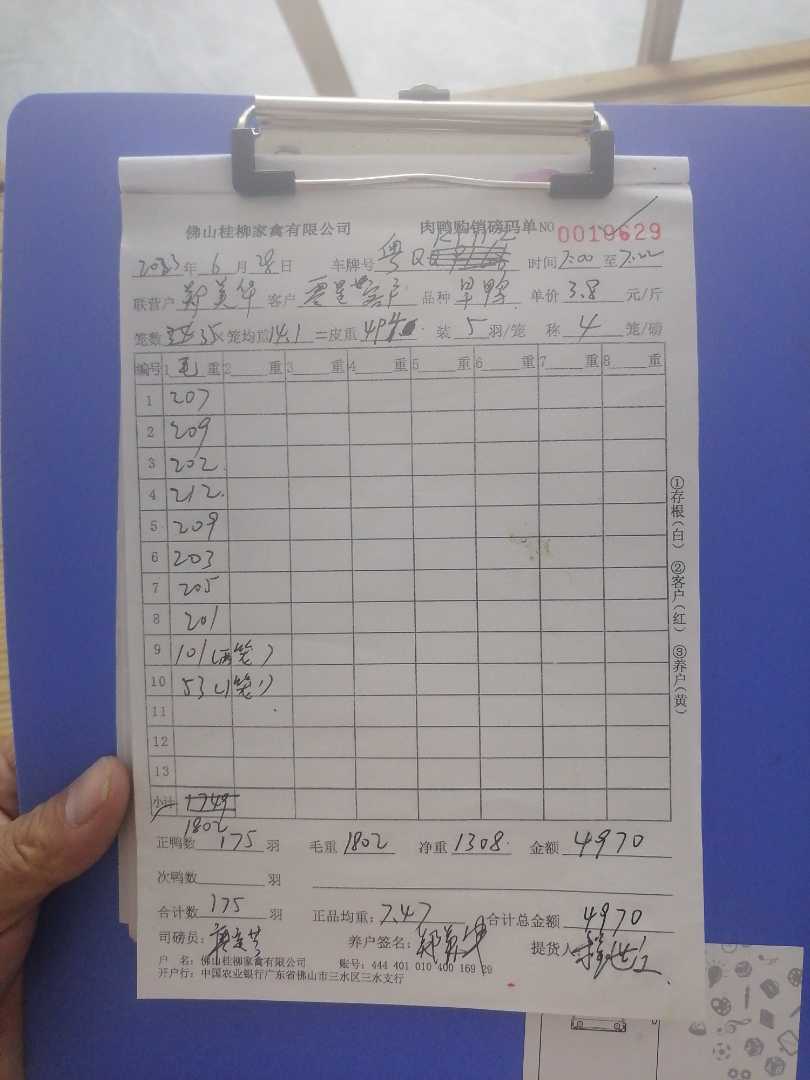 佛山桂柳家禽有限公司 肉鸭购销磅码单 NO 0019629
2023年6月28日 车牌号 粤Q 时间7:00至7:22
联营户 郑美华 客户 零星客户 品种 旱鸭 单价 3.8 元/斤
笼数 35×笼均重14.1=皮重494 装 5 羽/笼 称 4 笼/磅
编号 1毛重 2 重 3 重 4 重 5 重 6 重 7 重 8 重
1 207
2 209
3 202
4 212
5 209
6 203
7 205
8 201
9 101(两笼)
10 53(1笼)
11
12
13
小计 1749
1802
正鸭数 175 羽 毛重 1802 净重 1308 金额 4970
次鸭数 羽
合计数 175 羽 正品均重:7.47 合计总金额 4970
司磅员: 养户签名:郑美华 提货人
户 名:佛山桂柳家禽有限公司 账号:444 401 010 400 169 29
开户行:中国农业银行广东省佛山市三水区三水支行
①存根(白) ②客户(红) ③养户(黄)